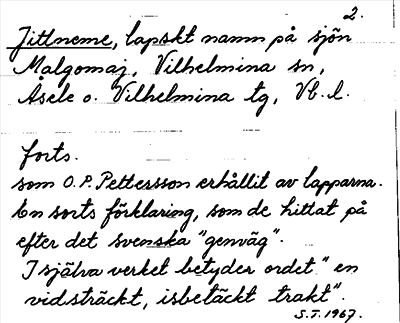 2.
Jittneme, lapskt namn på sjön
Malgomaj, Vilhelmina sn,
Åsele o. Vilhelmina tg, Vb. l.
forts.
som O.P. Pettersson erhållit av lapparna.
En sorts förklaring, som de hittat på
efter det svenska "genväg".
I själva verket betyder ordet "en
vidsträckt, isbetäckt trakt".
S.T. 1967.